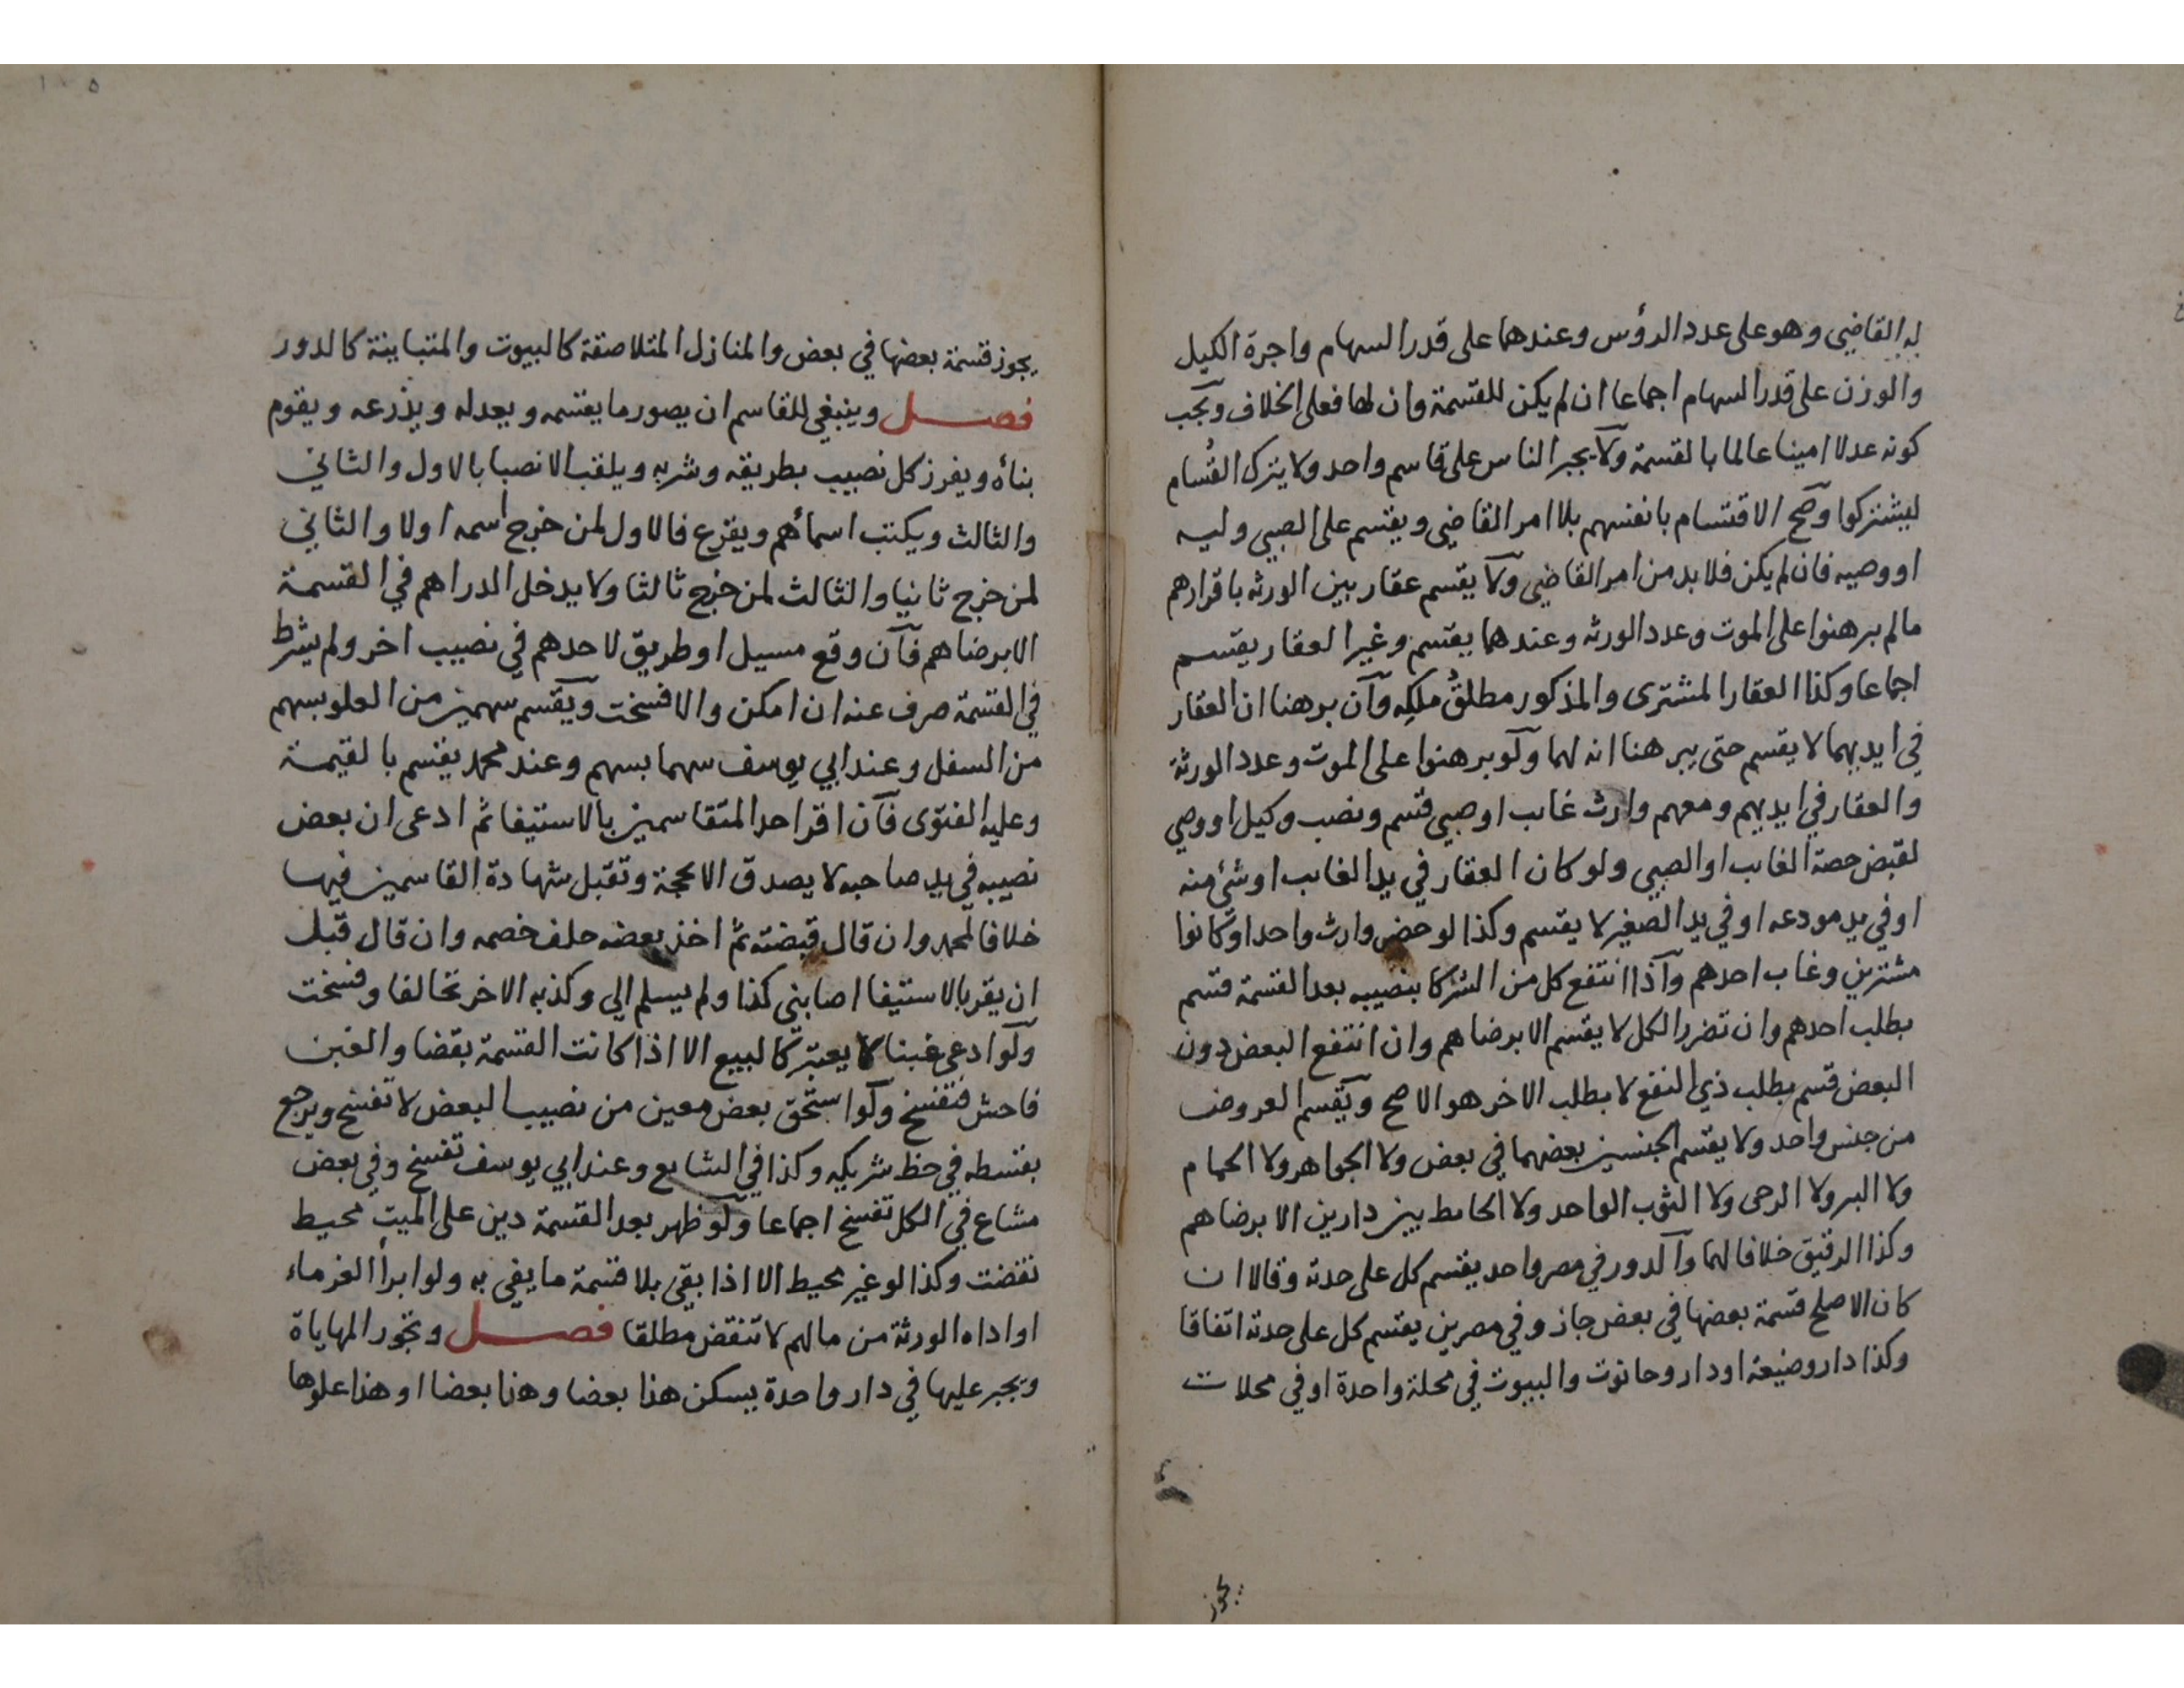 له القاضي وهو على عدد الرؤس وعندهما على قدر السهام واجرة الكيل
والوزن على قدر السهام اجماعا ان لم يكن للقسمة وان لها فعلى الخلاف ويجب
كونه عدلا امينا عالما بالقسمة ولا يجبر الناس على قاسم واحد ولا يترك القسام
ليشتركوا وصح الاقتسام بانفسهم بلا امر القاضي ويقسم على الصبي وليه
او وصيه فان لم يكن فلا بد من امر القاضي ولا يقسم عقار بين الورثه باقرارهم
مالم يبرهنوا على الموت وعدد الورثه وعندهما يقسم وغير العقار يقسم
اجماعا وكذا العقار المشترى والمذكور مطلق ملكه وان برهنا ان العقار
في ايديهما لا يقسم حتى يبرهنا انه لهما ولو برهنوا على الموت وعدد الورثة
والعقار في ايديهم ومعهم وارث غائب او صبي قسم ونصب وكيل او وصي
لقبض حصة الغائب او الصبي ولو كان العقار في يد الغائب او شئ منه
او في يد مودعه او في يد الصغير لا يقسم وكذا لو حضر وارث واحد او كانوا
مشترين وغاب احدهم واذا انتفع كل من الشركا بنصيبه بعد القسمة قسم
بطلب احدهم وان تضرر الكل لا يقسم الا برضاهم وان انتفع البعض دون
البعض قسم بطلب ذي النفع لا بطلب الاخر هو الاصح ويقسم العروض
من جنس واحد ولا يقسم الجنسين بعضهما في بعض ولا الجواهر ولا الحمام
ولا البر ولا الرحى ولا الثوب الواحد ولا الحائط بين دارين الا برضاهم
وكذا الرقيق خلافا لهما والدور في مصر واحد يقسم كل على حدته وقالا ان
كان الاصلح قسمة بعضها في بعض جاز وفي مصرين يقسم كل على حدته اتفاقا
وكذا دار وضيعة او دار وحانوت والبيوت في محلة واحدة او في محلات
يجوز
١٠٥
يجوز قسمة بعضها في بعض والمنازل المتلاصقة كالبيوت والمتباينة كالدور
فصل وينبغي للقاسم ان يصور ما يقسمه ويعدله ويذرعه ويقوم
بناأه ويفرز كل نصيب بطريقه وشربه ويلقب الانصبا بالاول والثاني
والثالث ويكتب اسمأهم ويقرع فالاول لمن خرج اسمه اولا والثاني
لمن خرج ثانيا والثالث لمن خرج ثالثا ولا يدخل الدراهم في القسمة
الا برضاهم فان وقع مسيل او طريق لاحدهم في نصيب اخر ولم يشرط
في القسمة صرف عنه ان امكن والا فسخت ويقسم سهمين من العلو بسهم
من السفل وعند ابي يوسف سهما بسهم وعند محمد يقسم بالقيمة
وعليه الفتوى فان اقر احد المتقاسمين بالاستيفا ثم ادعى ان بعض
نصيبه في يد صاحبه لا يصدق الا بحجة وتقبل شهادة القاسمين فيها
خلافا لمحمد وان قال قبضته ثم اخذ بعضه حلف خصمه وان قال قبل
ان يقر بالاستيفا اصابني كذا ولم يسلم الي وكذبه الاخر تحالفا وفسخت
ولو ادعى غبنا لا يعتبر كالبيع الا اذا كانت القسمة بقضا والغبن
فاحش فتفسخ ولو استحق بعض معين من نصيب البعض لا تفسخ ويرجع
بقسطه في حظ شريكه وكذا في الشايع وعند ابي يوسف تفسخ وفي بعض
مشاع في الكل تفسخ اجماعا ولو ظهر بعد القسمة دين على الميت محيط
نقضت وكذا لو غير محيط الا اذا بقي بلا قسمة ما يفي به ولو ابرأ الغرماء
او اداه الورثة من مالهم لا تنقض مطلقا فصل وتجوز المهاياة
ويجبر عليها في دار واحدة يسكن هذا بعضا وهذا بعضا او هذا علوها